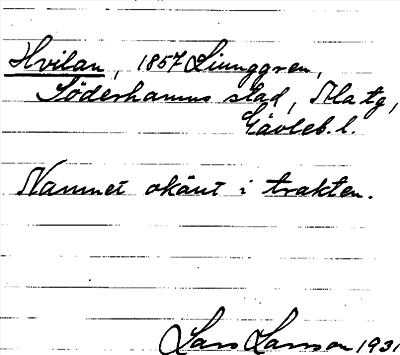 Hvilan, 1857 Ljunggren,
Söderhamns stad, Ala tg,
Gävleb. l.
Namnet okänt i trakten.
Lars Larsson 1931